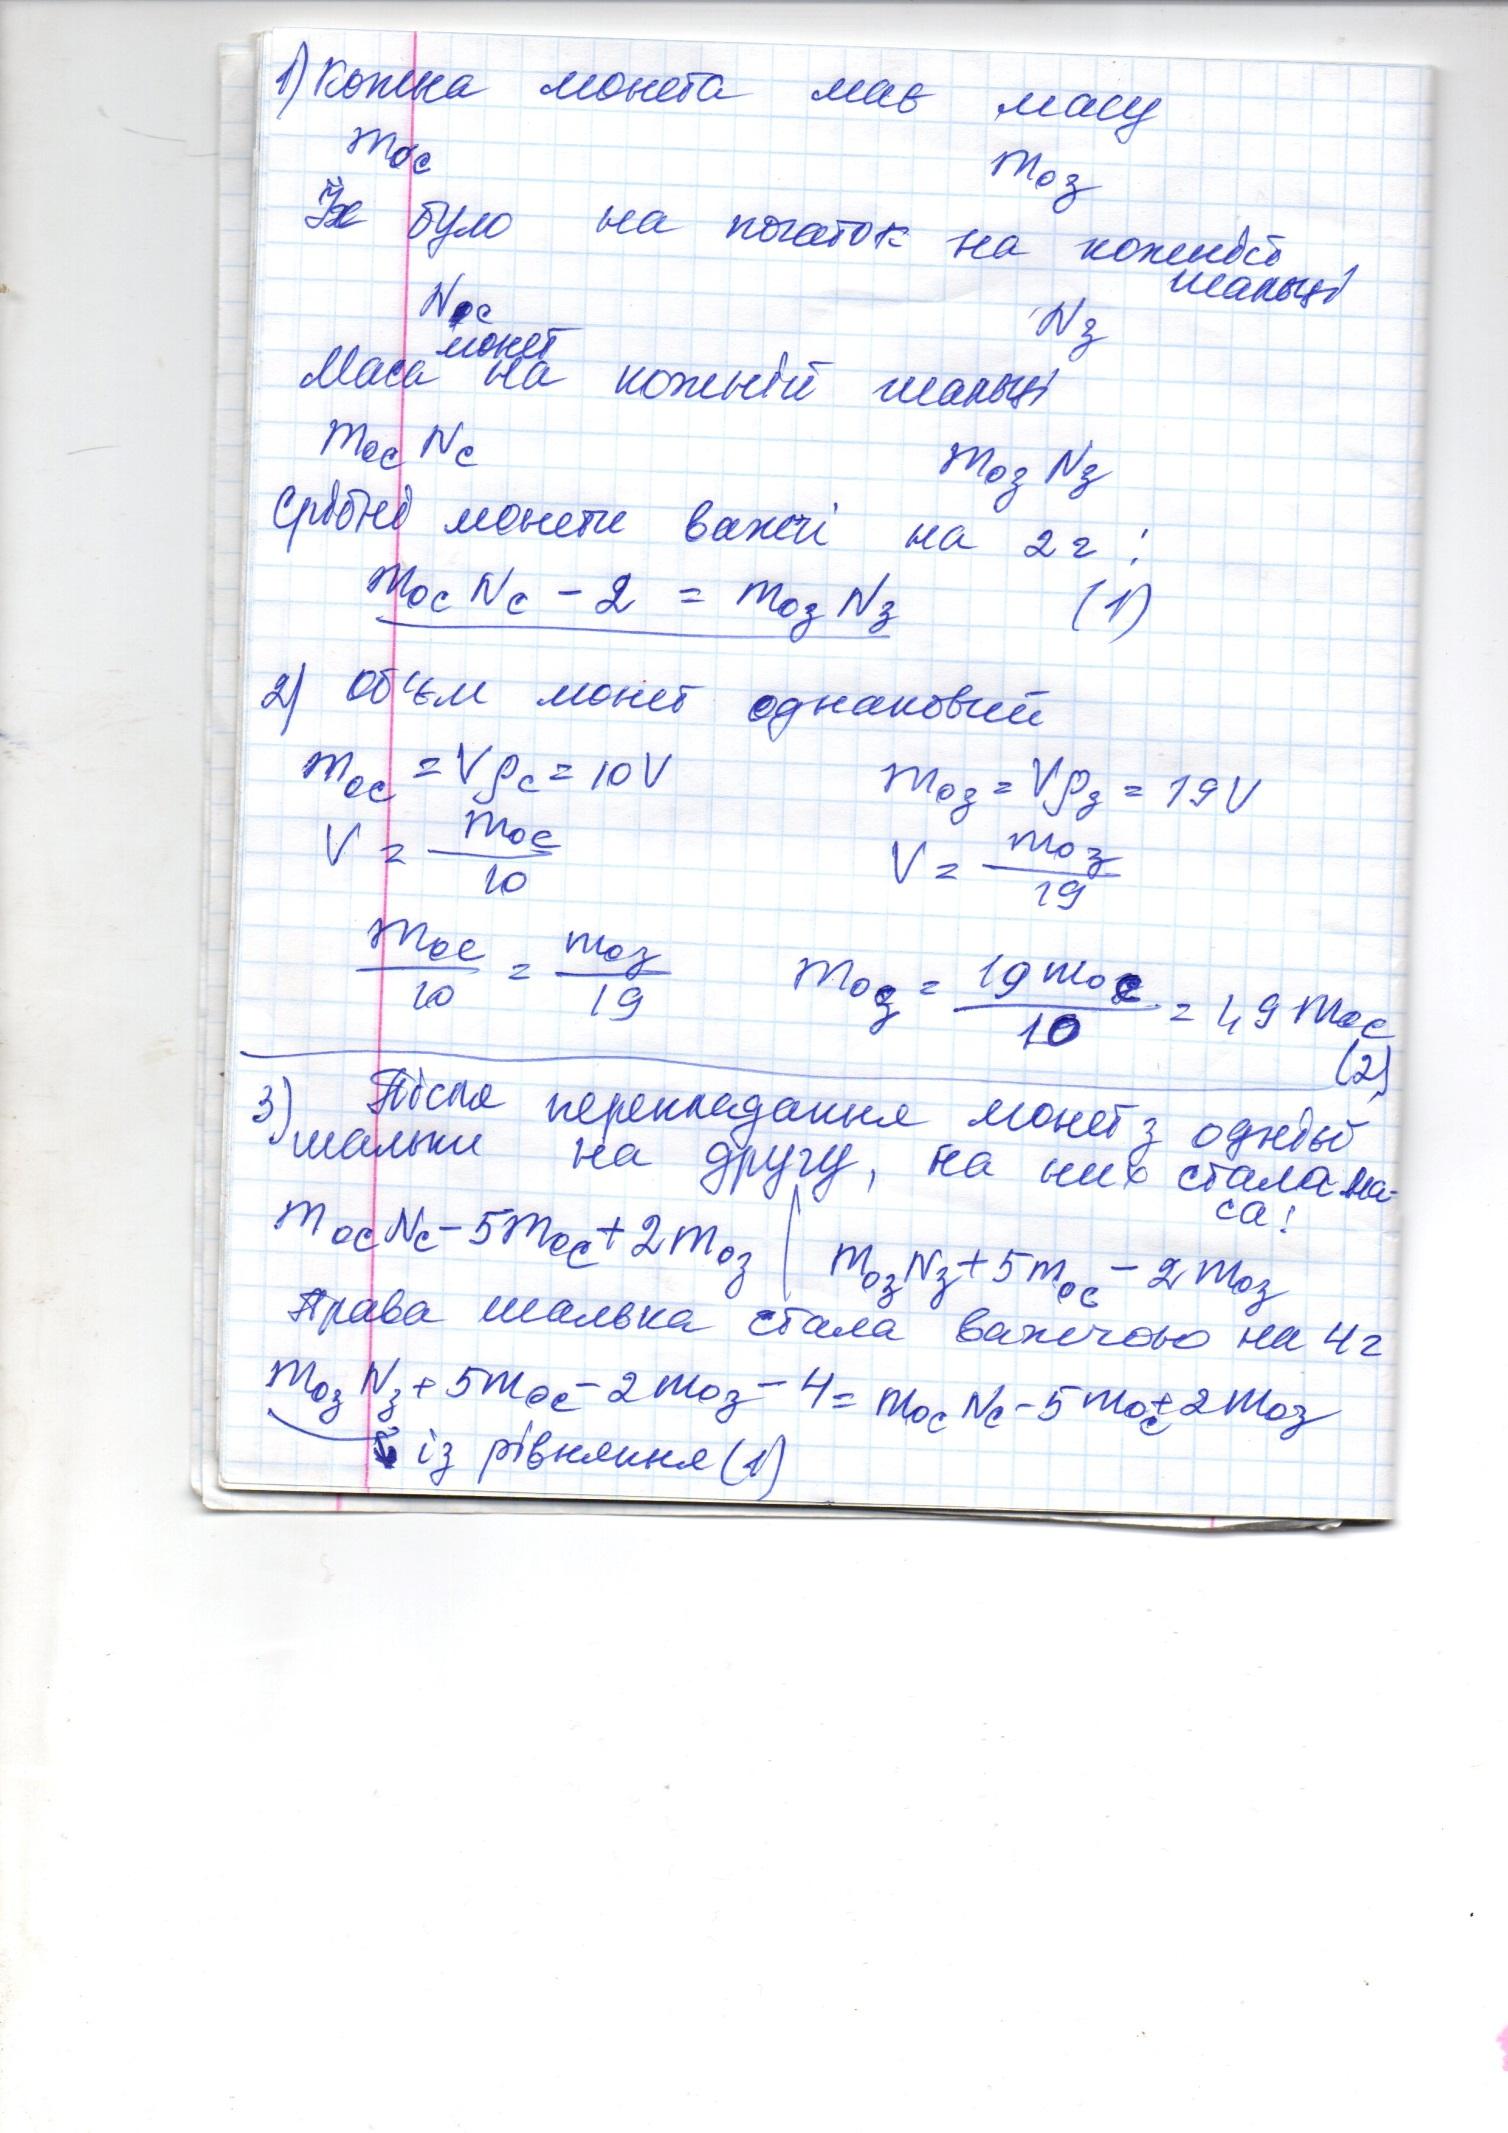 1) Кожна монета має масу
mос mоз
Їх було на початок на кожній
шальці
Nос Nз
монет
Маса на кожній шальці
mос Nс mоз Nз
Срібні монети важчі на 2г:
mос Nс - 2 = mоз Nз (1)
2) Об'єм монет однаковий
mос = Vρс = 10V mоз = Vρз = 19V
V = mос/10 V = mоз/19
mос/10 = mоз/19 mоз = 19mос/10 = 1,9 mос
(2)
3) Після перекладання монет з однієї
шальки на другу, на них стала ма-
са:
mос Nс - 5mос + 2mоз | mоз Nз + 5mос - 2mоз
Права шалька стала важчою на 4г
mоз Nз + 5mос - 2mоз - 4 = mос Nс - 5mос + 2mоз
↓ із рівняння (1)